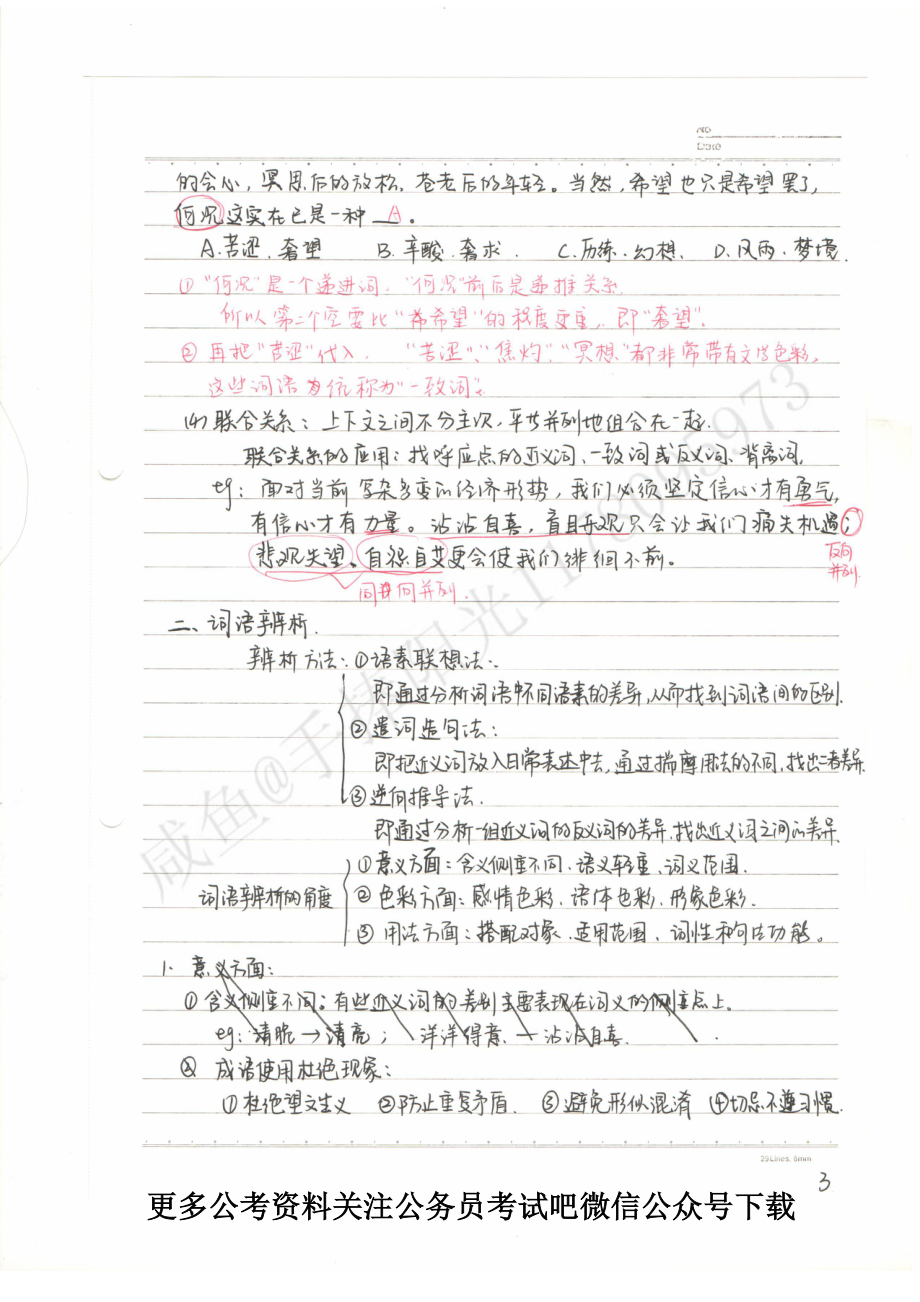 NO
Date
的会心，冥思后的放松，苍老后的年轻。当然，希望也只是希望罢了，
何况这实在已是一种 A 。
A.苦涩．奢望 B.辛酸．奢求 C.历练．幻想 D.风雨．梦境
①“何况”是一个递进词．“何况”前后是递推关系．
所以第二个空要比“希希望”的程度更重，即“奢望”．
②再把“苦涩”代入．“苦涩”、“焦灼”、“冥想”都非常带有文学色彩，
这些词语 传称为“一致词”．
(4)联合关系：上下文之间不分主次，平等并列地组合在一起．
联合关系的应用：找呼应点的近义词、一致词或反义词、背离词．
eg：面对当前复杂多变的经济形势，我们必须坚定信心才有勇气，
有信心才有力量。沾沾自喜，盲目乐观只会让我们痛失机遇；
悲观失望、自怨自艾更会使我们徘徊不前。
反向
并列
同向并列
二、词语辨析．
辨析方法：①语素联想法．
即通过分析词语中不同语素的差异，从而找到词语间的区别．
②遣词造句法：
即把近义词放入日常表述中去，通过揣摩用法的不同，找出二者差异．
③逆向推导法．
即通过分析一组近义词的反义词的差异，找出近义词之间的差异．
①意义方面：含义侧重不同、语义轻重、词义范围．
词语辨析的角度 ②色彩方面：感情色彩、语体色彩、形象色彩．
③用法方面：搭配对象、适用范围、词性和句法功能。
1．意义方面：
①含义侧重不同：有些近义词的差别主要表现在词义的侧重点上。
eg：清脆→清亮； 洋洋得意—沾沾自喜．
② 成语使用杜绝现象：
①杜绝望文生义 ②防止重复矛盾． ③避免形似混淆 ④切忌不遵习惯．
29Lines, 6mm
3
更多公考资料关注公务员考试吧微信公众号下载
咸鱼@手捧阳光117809<br>5973